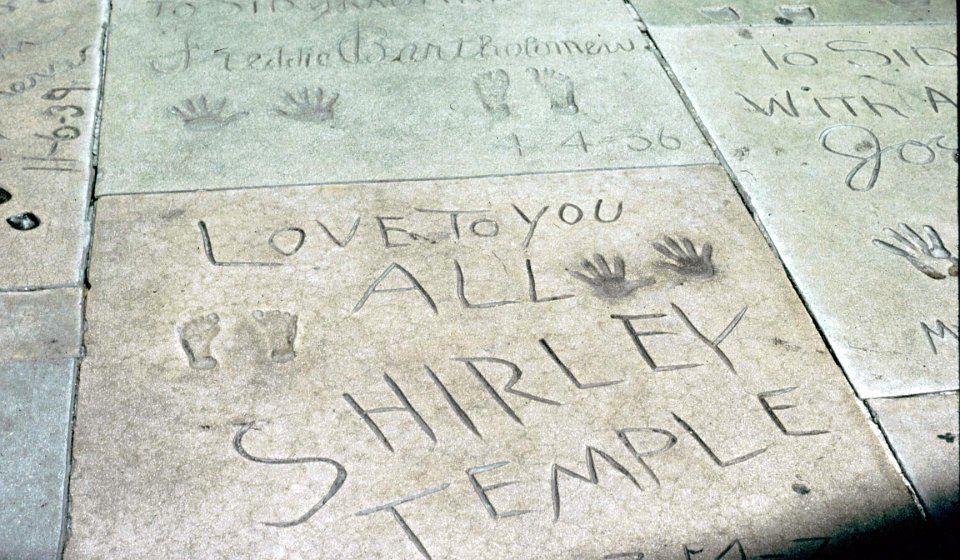 TO SID
Freddie Bartholomew
4-4-36
11-6-39
TO SID
WITH A
LOVE TO YOU
ALL
SHIRLEY
TEMPLE